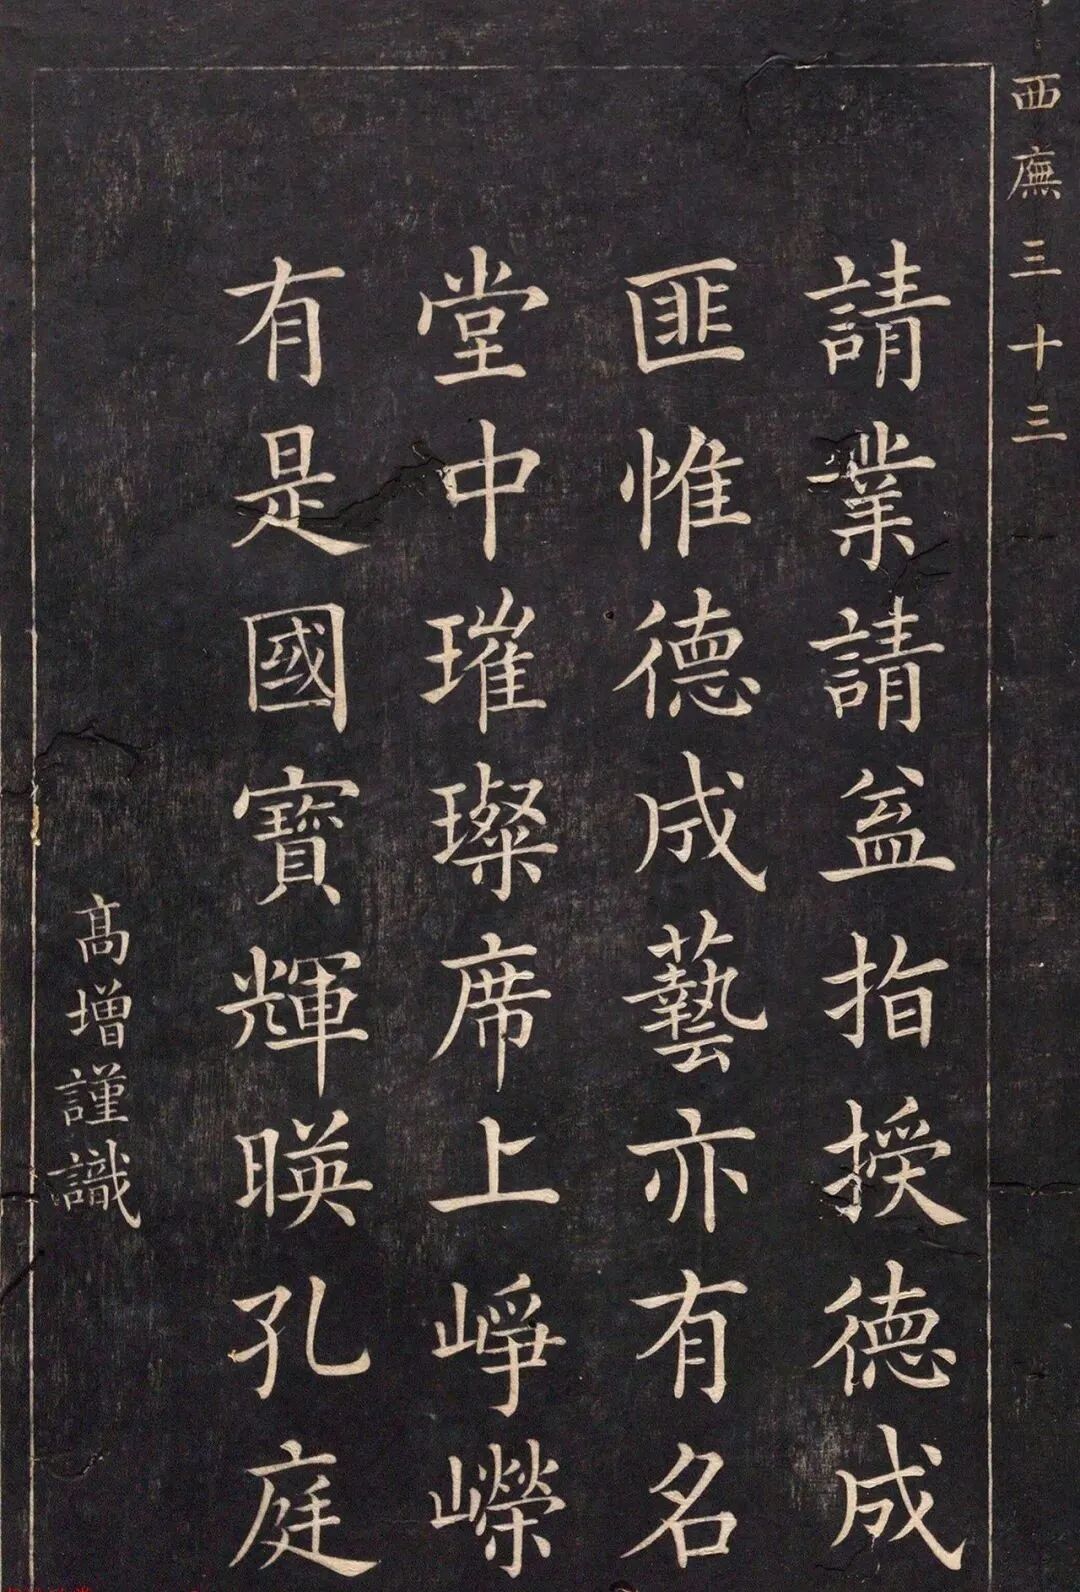 西廡三十三
請業請益指授德成
匪惟德成藝亦有名
堂中璀璨席上崢嶸
有是國寶輝暎孔庭
高增謹識